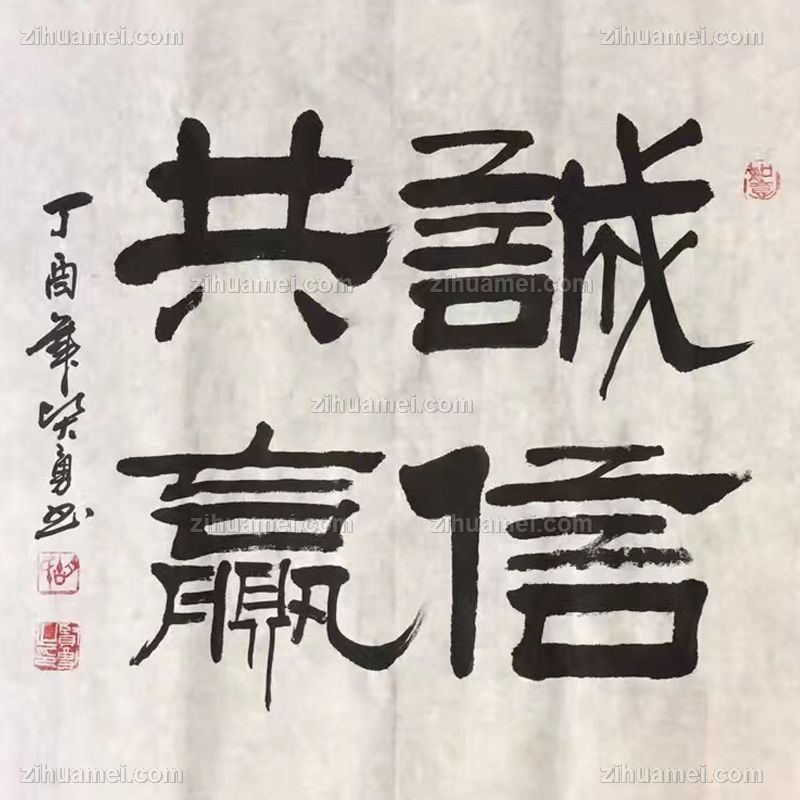 誠信
共贏
丁酉年 勇书
zihuamei.com
zihuamei.com
zihuamei.com
zihuamei.com
zihuamei.com
zihuamei.com
zihuamei.com
zihuamei.com
zihuamei.com